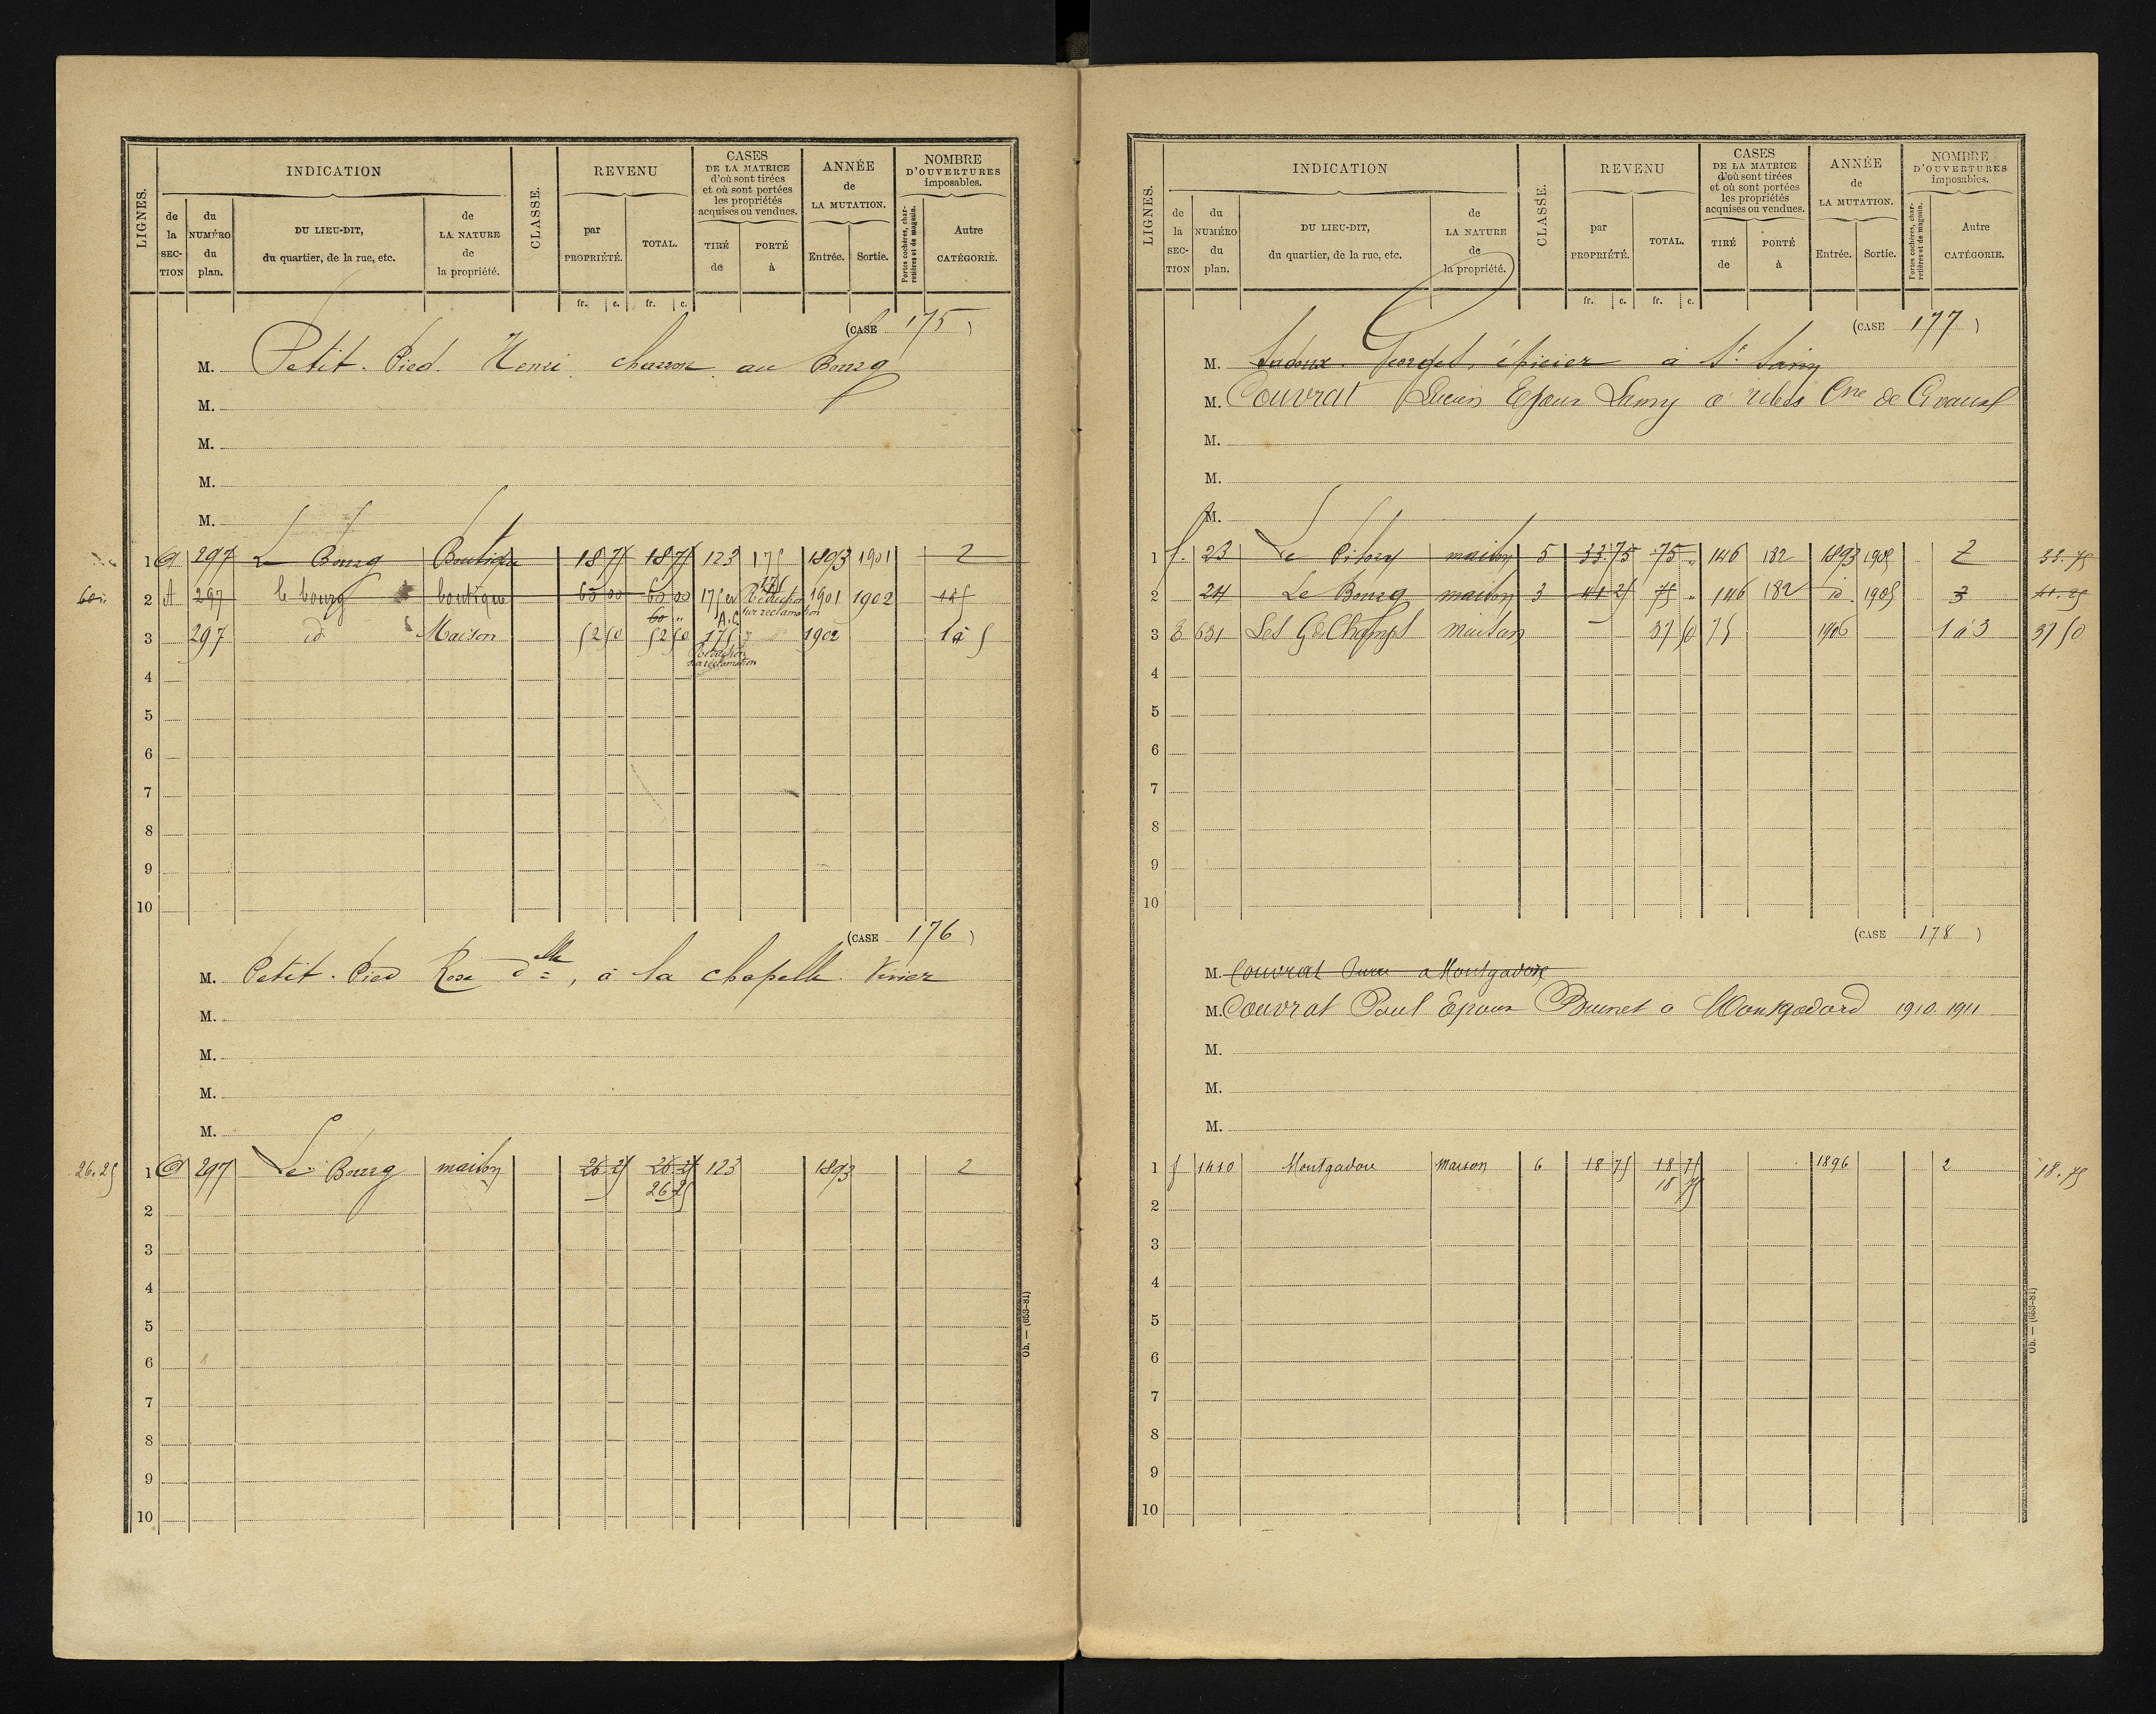 LIGNES.
INDICATION
de la SEC-TION
du NUMÉRO du plan.
DU LIEU-DIT, du quartier, de la rue, etc.
de LA NATURE de la propriété.
CLASSE.
REVENU
par PROPRIÉTÉ.
TOTAL.
CASES DE LA MATRICE d'où sont tirées et où sont portées les propriétés acquises ou vendues.
TIRÉ de
PORTÉ à
ANNÉE de LA MUTATION.
Entrée.
Sortie.
NOMBRE D'OUVERTURES imposables.
Portes cochères, charretières et de magasin.
Autre CATÉGORIE.
fr. c. fr. c.
(CASE 175)
M. Petit-Pied Henri au Bourg
M.
M.
M.
M.
1 297 Le Bourg Boutique 18 75 18 75 123 175 1893 1901 2
60 " 2 A 297 le bourg boutique 65 00 65 00 175 Réduction sur réclamation 1901 1902
60 "
3 297 id Maison 52 50 52 50 175 1902 1 à 5
Réduction sur réclamation
4
5
6
7
8
9
10
(CASE 176)
M. Petit-Pied Rose delle, à la chapelle Vivier
M.
M.
M.
M.
26.25 1 297 Le Bourg maison 26 25 26 25 123 1893 2
26 25
2
3
4
5
6
7
8
9
10
Ob. — (653-81)
LIGNES.
INDICATION
de la SEC-TION
du NUMÉRO du plan.
DU LIEU-DIT, du quartier, de la rue, etc.
de LA NATURE de la propriété.
CLASSE.
REVENU
par PROPRIÉTÉ.
TOTAL.
CASES DE LA MATRICE d'où sont tirées et où sont portées les propriétés acquises ou vendues.
TIRÉ de
PORTÉ à
ANNÉE de LA MUTATION.
Entrée.
Sortie.
NOMBRE D'OUVERTURES imposables.
Portes cochères, charretières et de magasin.
Autre CATÉGORIE.
fr. c. fr. c.
(CASE 177)
M. épicier à St
M. Couvrat Lucien Epoux Lamy a Cne de
M.
M.
M.
1 f. 23 Le maison 5 33.75 75 " 146 182 1893 1905 2 33.75
2 24 Le Bourg maison 3 41 25 75 " 146 182 id 1905 3 41.25
3 E 631 Les Gds Champs maison 37 50 75 1906 1 à 3 37 50
4
5
6
7
8
9
10
(CASE 178)
M. Couvrat a Montgadore
M. Couvrat Paul Epoux Brunet a Montgadord 1910. 1911
M.
M.
M.
1 f 1410 Montgadore Maison 6 18 75 18 75 1896 2 18.75
18 75
2
3
4
5
6
7
8
9
10
Ob. — (653-81)